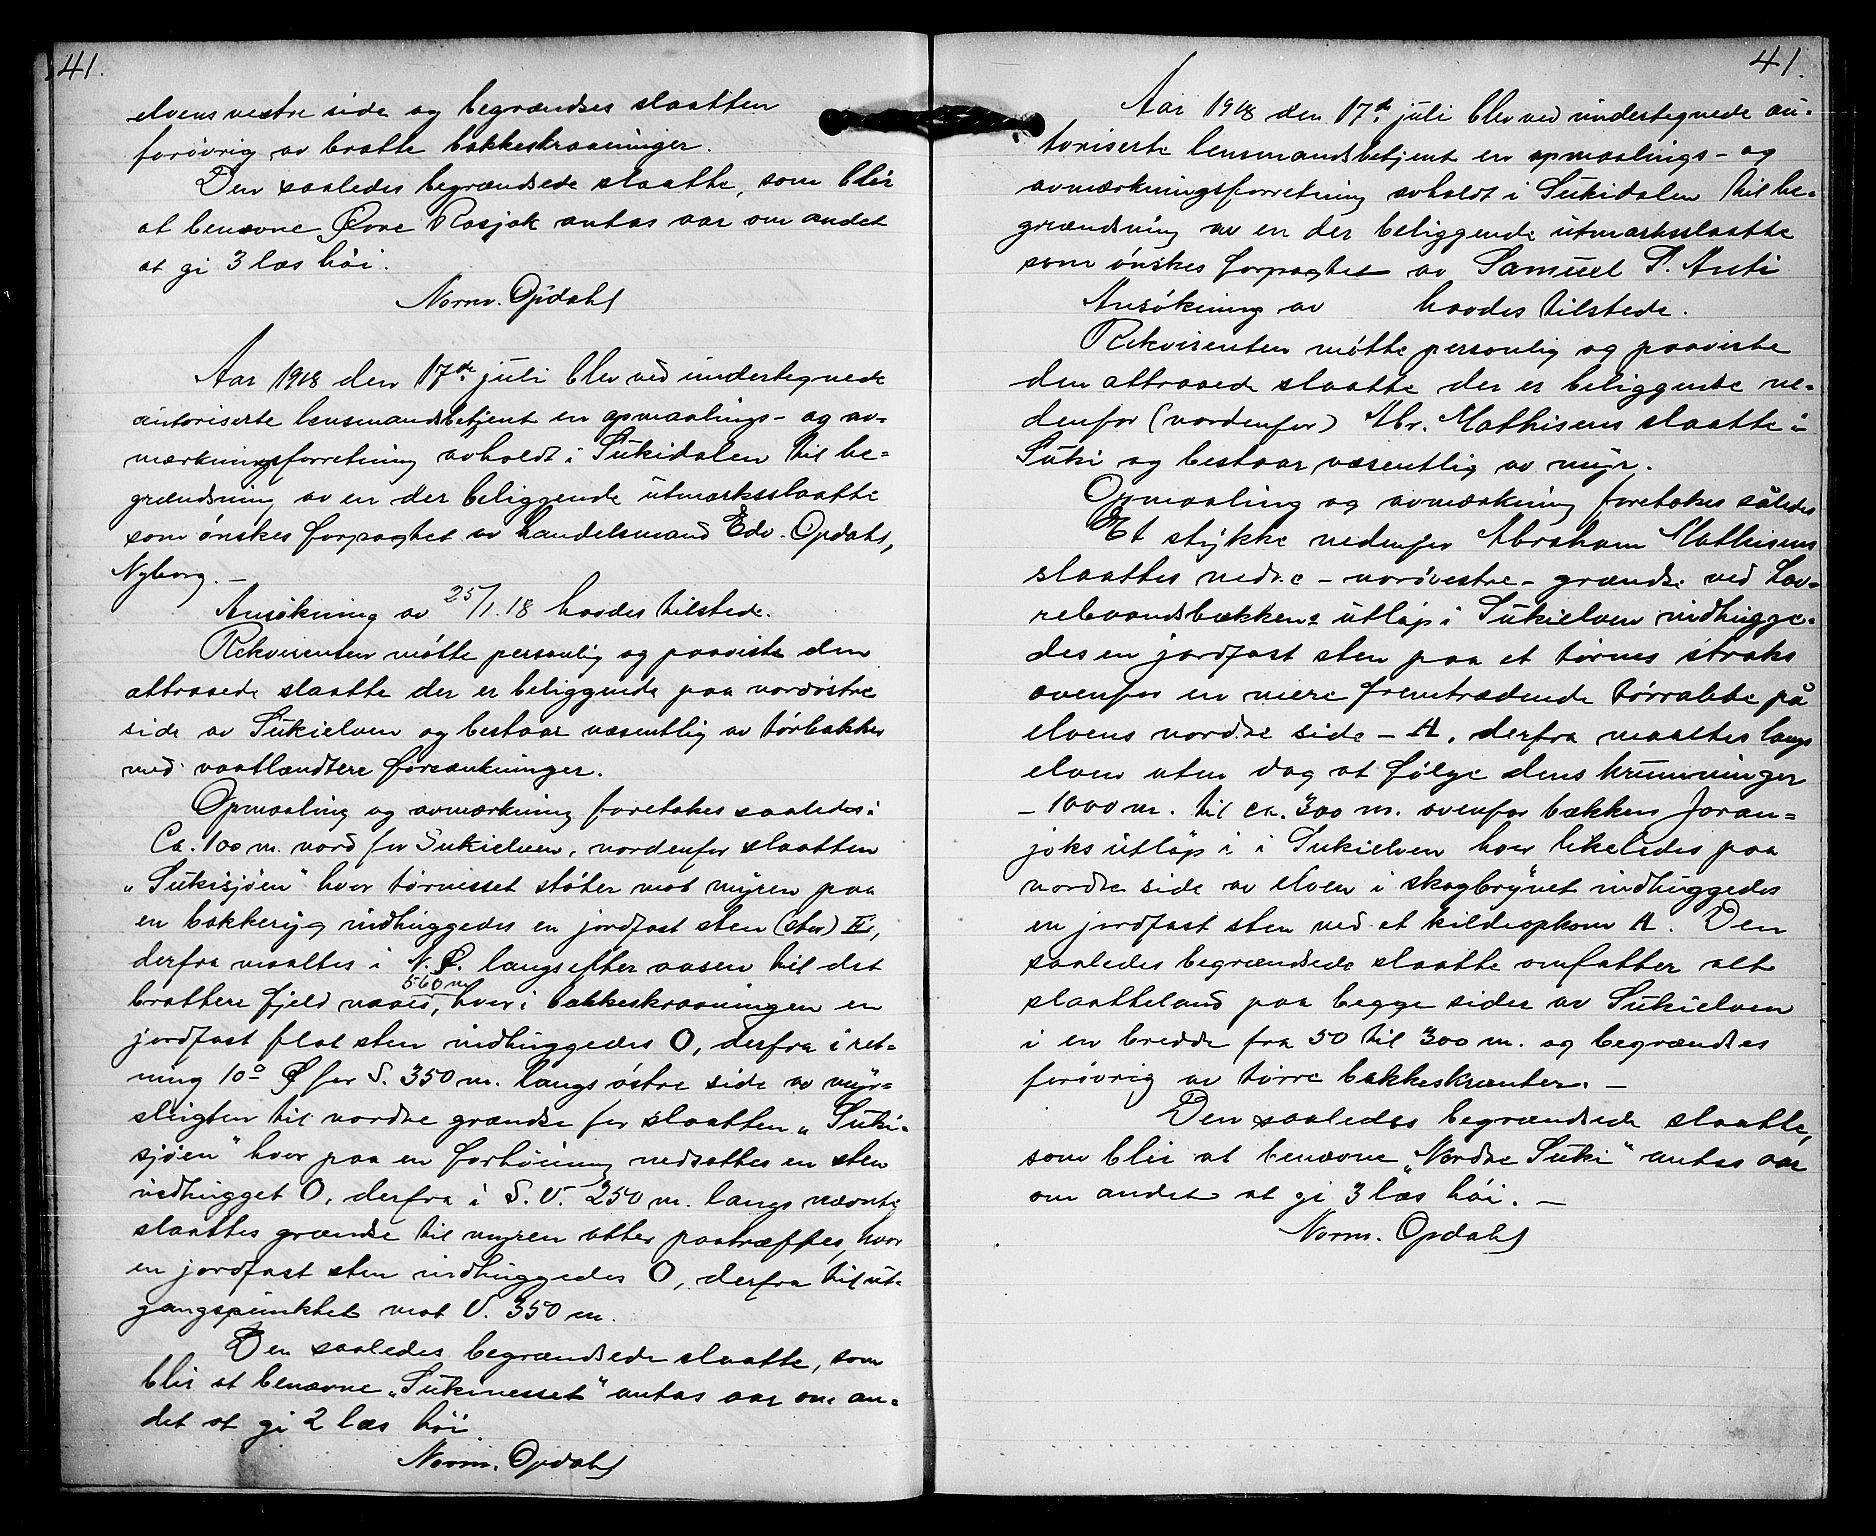 41.
elvens vestre side og begrændses slaatten
forøvrig av bratte bakkeskraaninger.
Den saaledes begrændsede slaatte, som blir
at benævne Øvre Rasjok antas aar om andet
at gi 3 læs høi.
Norm. Opdahl
Aar 1918 den 17de juli blev ved undertegnede
autoriserte lensmandsbetjent en opmaalings- og av-
mærkningsforretning avholdt i Sukidalen til be-
grændsning av en der beliggende utmarksslaatte
som ønskes forpagtet av handelsmand Edv. Opdahl,
Nyborg. -
Ansøkning av 25/1.18 havdes tilstede.
Rekvirenten møtte personlig og paaviste den
attraaede slaatte der er beliggende paa nordøstre
side av Sukielven og bestaar væsentlig av tørbakker
med vaatlændtere forsænkninger.
Opmaaling og avmærkning foretokes saaledes:
Ca. 100 m. nord for Sukielven, nordenfor slaatten
„Sukisjøen" hvor tørnesset støter mot myren paa
en bakkeryg indhuggedes en jordfast sten (stor)
derfra maaltes i N.Ø. langsefter aasen til det
brattere fjeld naaes, 560 m hvor i bakkeskraaningen en
jordfast flat sten indhuggedes O, derfra i ret-
ning 10° Ø for S. 350 m. langs østre side av myr-
slugten til nordre grændse for slaatten „Suki-
sjøen" hvor paa en forhøining nedsattes en sten
indhugget O, derfra i S.V. 250 m. langs nævnte
slaattes grændse til myren atter paatræffes, hvor
en jordfast sten indhuggedes O, derfra til ut-
gangspunktet mot V. 350 m.
Den saaledes begrændsede slaatte, som
blir at benævne „Sukinesset" antas aar om an-
det at gi 2 læs høi.
Norm. Opdahl
41.
Aar 1918 den 17de juli blev ved undertegnede au-
toriserte lensmandsbetjent en opmaalings- og
avmærkningsforretning avholdt i Sukidalen til be-
grændsning av en der beliggende utmarksslaatte
som ønskes forpagtet av Samuel S. Anti
Ansøkning av havdes tilstede.
Rekvirenten møtte personlig og paaviste
den attraaede slaatte der er beliggende ne-
denfor (nordenfor) Abr. Mathisens slaatte i
Suki og bestaar væsentlig av myr.
Opmaaling og avmærkning foretokes således
Et stykke nedenfor Abraham Mathisens
slaattes nedre - nordvestre - grændse ved Lav-
relvandsbækkens utløp i Sukielven indhugge-
des en jordfast sten paa et tørnes straks
ovenfor en mere fremtrædende tørrabbe på
elvens nordre side - A, derfra maaltes langs
elven uten dog at følge dens krumninger
- 1000 m. til ca. 300 m. ovenfor bækken Joran-
joks utløp i i Sukielven hvor likeledes paa
nordre side av elven i skogbrynet indhuggedes
en jordfast sten ved et kildeopkom A. Den
saaledes begrændsede slaatte omfatter alt
slaatteland paa begge sider av Sukielven
i en bredde fra 50 til 300 m. og begrændses
forøvrig av tørre bakkeskrænter. -
Den saaledes begrændsede slaatte,
som blir at benævne „Nordre Suki" antas aar
om andet at gi 3 læs høi. -
Norm. Opdahl